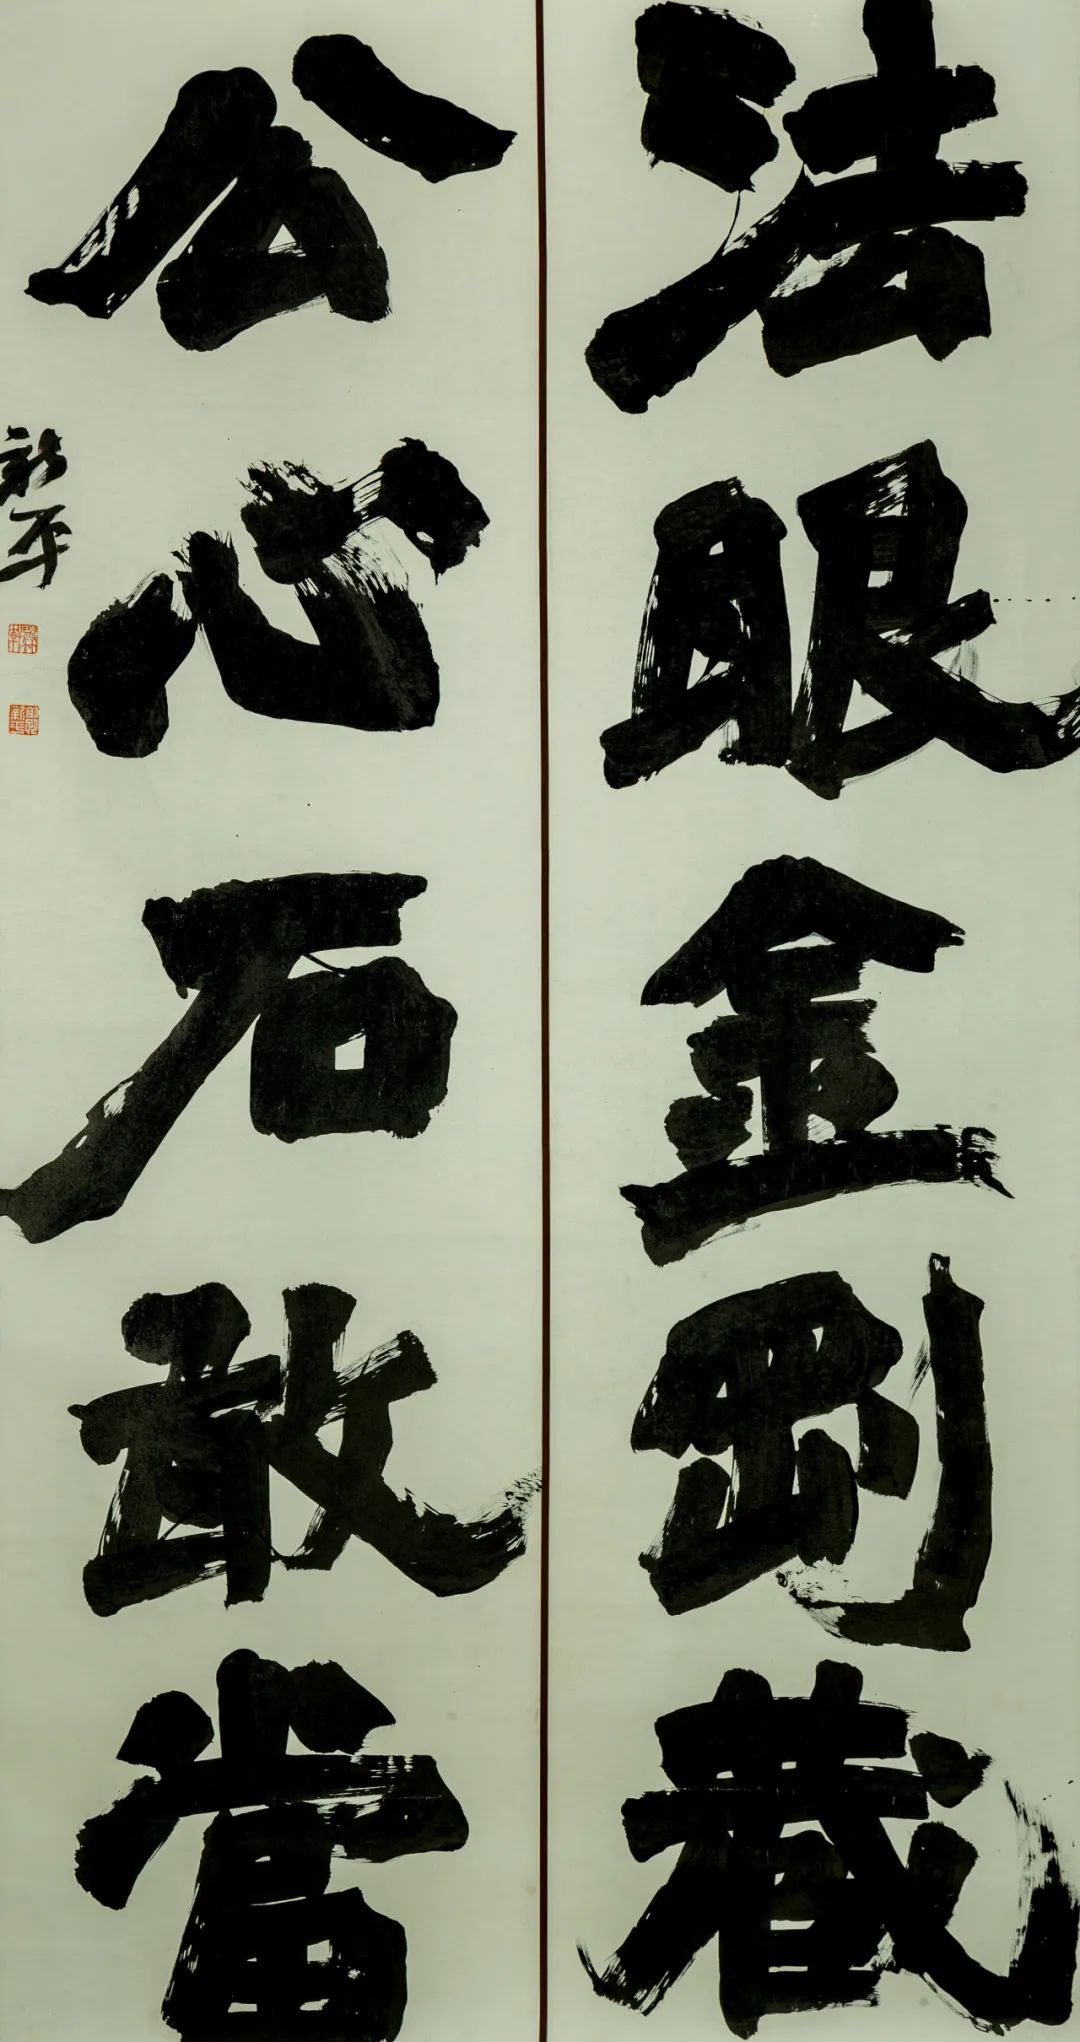 法眼金剛藏
公心石敢當
新平